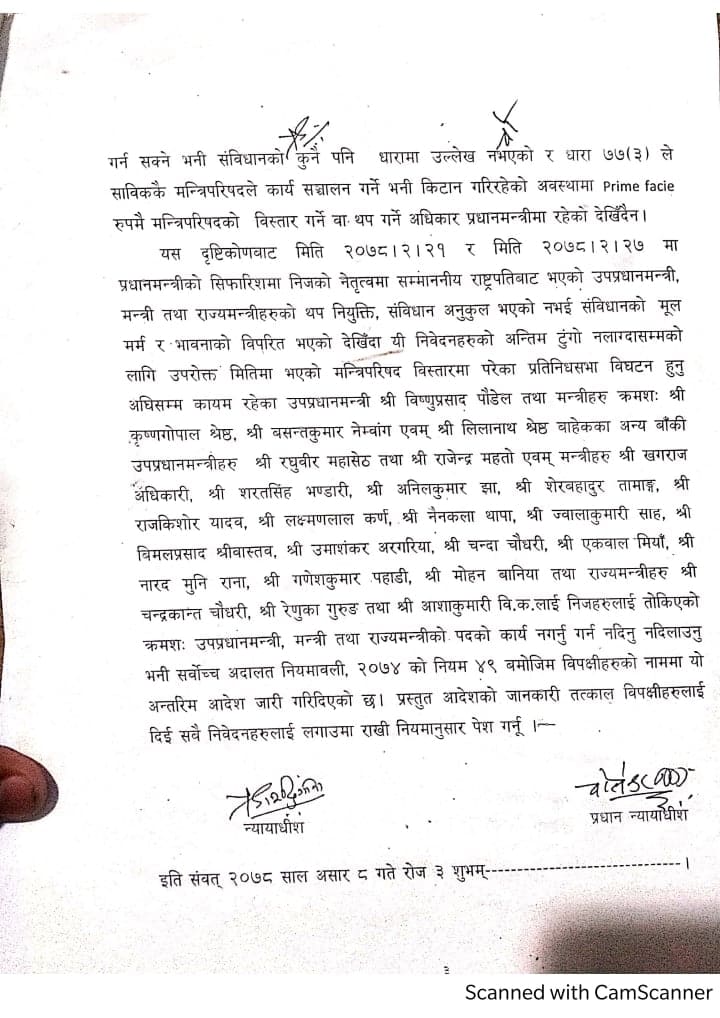 गर्न सक्ने भनी संविधानको कुनै पनि धारामा उल्लेख नभएको र धारा ७७(३) ले
साविककै मन्त्रिपरिषदले कार्य सञ्चालन गर्ने भनी किटान गरिरहेको अवस्थामा Prime facie
रुपमै मन्त्रिपरिषदको विस्तार गर्ने वा थप गर्ने अधिकार प्रधानमन्त्रीमा रहेको देखिँदैन।
यस दृष्टिकोणवाट मिति २०७८।२।२१ र मिति २०७८।२।२७ मा
प्रधानमन्त्रीको सिफारिशमा निजको नेतृत्वमा सम्माननीय राष्ट्रपतिबाट भएको उपप्रधानमन्त्री,
मन्त्री तथा राज्यमन्त्रीहरुको थप नियुक्ति, संविधान अनुकुल भएको नभई संविधानको मूल
मर्म र भावनाको विपरित भएको देखिँदा यी निवेदनहरुको अन्तिम टुंगो नलाग्दासम्मको
लागि उपरोक्त मितिमा भएको मन्त्रिपरिषद विस्तारमा परेका प्रतिनिधसभा विघटन हुनु
अघिसम्म कायम रहेका उपप्रधानमन्त्री श्री विष्णुप्रसाद पौडेल तथा मन्त्रीहरु क्रमशः श्री
कृष्णगोपाल श्रेष्ठ, श्री बसन्तकुमार नेम्वांग एवम् श्री लिलानाथ श्रेष्ठ वाहेकका अन्य बाँकी
उपप्रधानमन्त्रीहरु श्री रघुवीर महासेठ तथा श्री राजेन्द्र महतो एवम् मन्त्रीहरु श्री खगराज
अधिकारी, श्री शरतसिंह भण्डारी, श्री अनिलकुमार झा, श्री शेरवहादुर तामाङ्ग, श्री
राजकिशोर यादव, श्री लक्ष्मणलाल कर्ण, श्री नैनकला थापा, श्री ज्वालाकुमारी साह, श्री
विमलप्रसाद श्रीवास्तव, श्री उमाशंकर अरगरिया, श्री चन्दा चौधरी, श्री एकवाल मियाँ, श्री
नारद मुनि राना, श्री गणेशकुमार पहाडी, श्री मोहन बानिया तथा राज्यमन्त्रीहरु श्री
चन्द्रकान्त चौधरी, श्री रेणुका गुरुङ तथा श्री आशाकुमारी वि.क.लाई निजहरुलाई तोकिएको
क्रमशः उपप्रधानमन्त्री, मन्त्री तथा राज्यमन्त्रीको पदको कार्य नगर्नु गर्न नदिनु नदिलाउनु
भनी सर्वोच्च अदालत नियमावली, २०७४ को नियम ४९ बमोजिम विपक्षीहरुको नाममा यो
अन्तरिम आदेश जारी गरिदिएको छ। प्रस्तुत आदेशको जानकारी तत्काल विपक्षीहरुलाई
दिई सवै निवेदनहरुलाई लगाउमा राखी नियमानुसार पेश गर्नू ।—
न्यायाधीश
प्रधान न्यायाधीश
इति संवत् २०७८ साल असार ८ गते रोज ३ शुभम्------------------------------।
३
Scanned with CamScanner